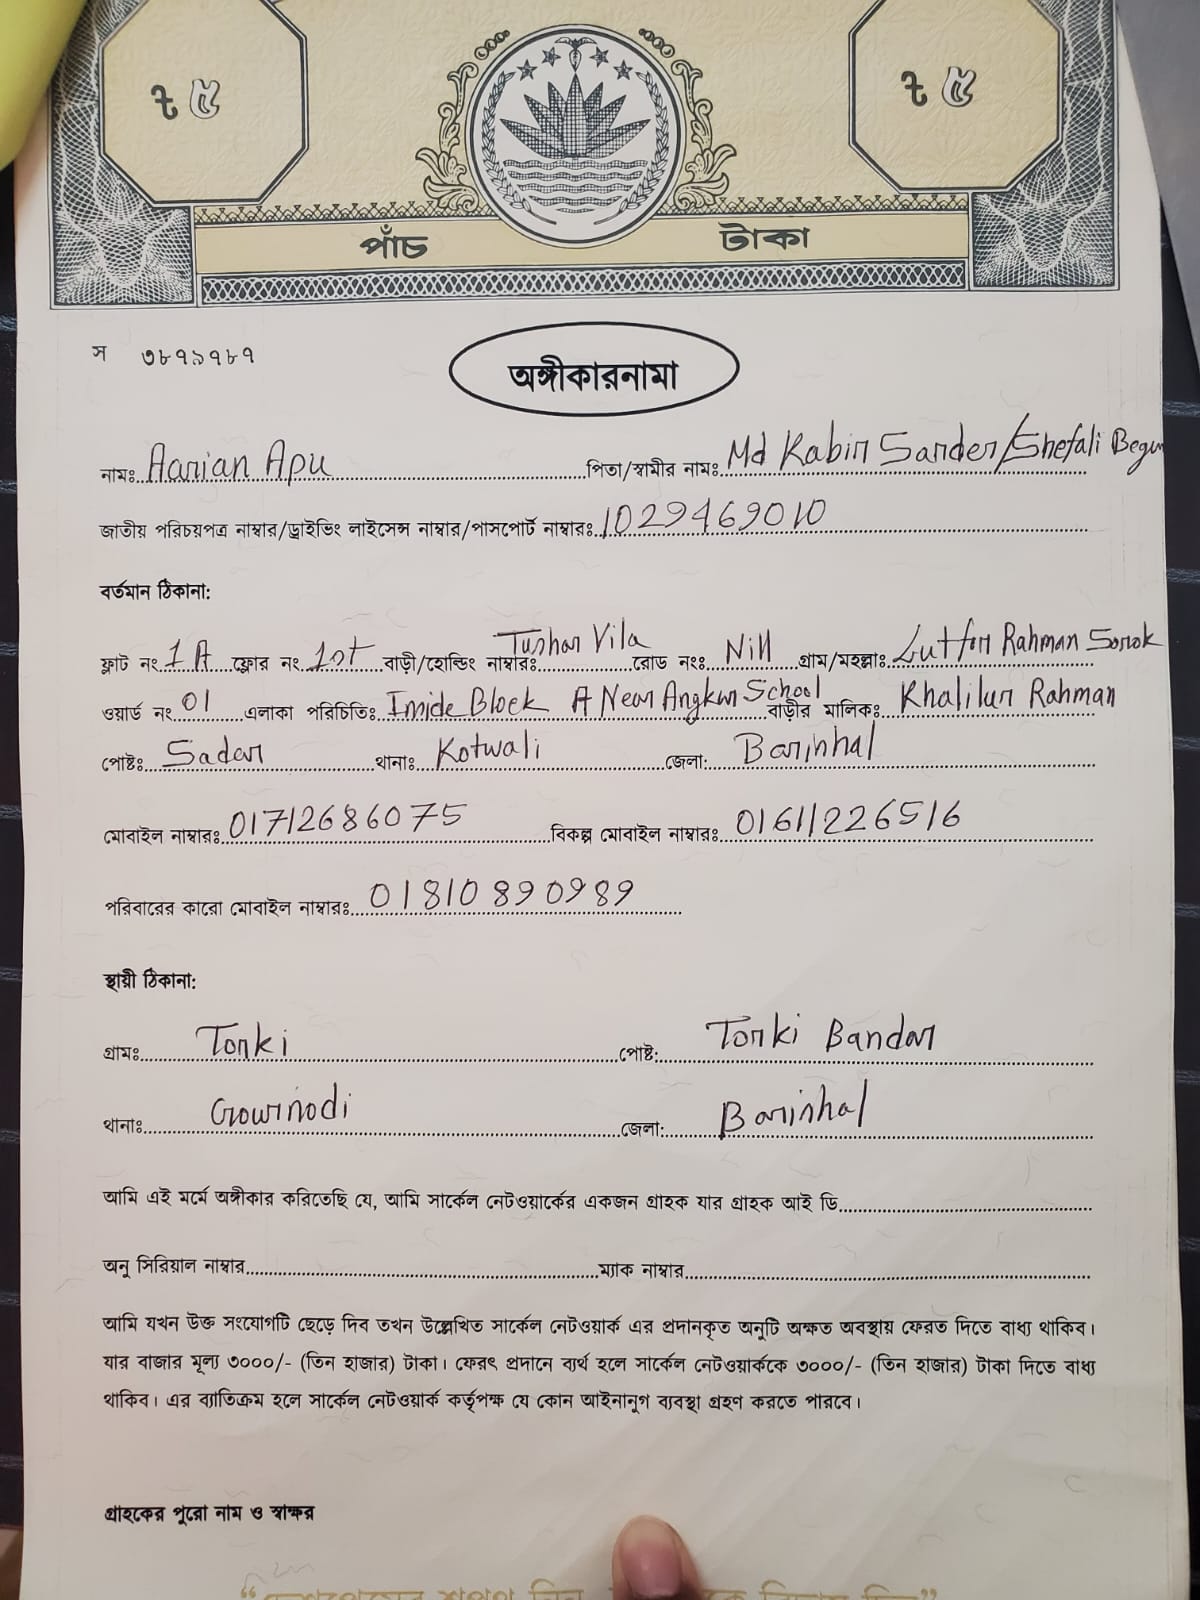 ৳ ৫ ৳ ৫
পাঁচ টাকা
স ৩৮৭১৭৮৭
অঙ্গীকারনামা
নামঃ Aarian Apu পিতা/স্বামীর নামঃ Md Kabir Sarder/Shefali Begum
জাতীয় পরিচয়পত্র নাম্বার/ড্রাইভিং লাইসেন্স নাম্বার/পাসপোর্ট নাম্বারঃ 1029469010
বর্তমান ঠিকানা:
ফ্লাট নং 1A ফ্লোর নং 1st বাড়ী/হোল্ডিং নাম্বারঃ Tushar Vila রোড নংঃ Nill গ্রাম/মহল্লাঃ Lutfor Rahman Sorok
ওয়ার্ড নং 01 এলাকা পরিচিতিঃ Inside Block A Near Angkur School বাড়ীর মালিকঃ Khalilur Rahman
পোষ্টঃ Sadar থানাঃ Kotwali জেলা: Barishal
মোবাইল নাম্বারঃ 01712686075 বিকল্প মোবাইল নাম্বারঃ 01611226516
পরিবারের কারো মোবাইল নাম্বারঃ 01810890989
স্থায়ী ঠিকানা:
গ্রামঃ Torki পোষ্ট: Torki Bandar
থানাঃ Gowrnodi জেলা: Barishal
আমি এই মর্মে অঙ্গীকার করিতেছি যে, আমি সার্কেল নেটওয়ার্কের একজন গ্রাহক যার গ্রাহক আই ডি
অনু সিরিয়াল নাম্বার ম্যাক নাম্বার
আমি যখন উক্ত সংযোগটি ছেড়ে দিব তখন উল্লেখিত সার্কেল নেটওয়ার্ক এর প্রদানকৃত অনুটি অক্ষত অবস্থায় ফেরত দিতে বাধ্য থাকিব।
যার বাজার মূল্য ৩০০০/- (তিন হাজার) টাকা। ফেরৎ প্রদানে ব্যর্থ হলে সার্কেল নেটওয়ার্ককে ৩০০০/- (তিন হাজার) টাকা দিতে বাধ্য
থাকিব। এর ব্যতিক্রম হলে সার্কেল নেটওয়ার্ক কর্তৃপক্ষ যে কোন আইনানুগ ব্যবস্থা গ্রহণ করতে পারবে।
গ্রাহকের পুরো নাম ও স্বাক্ষর